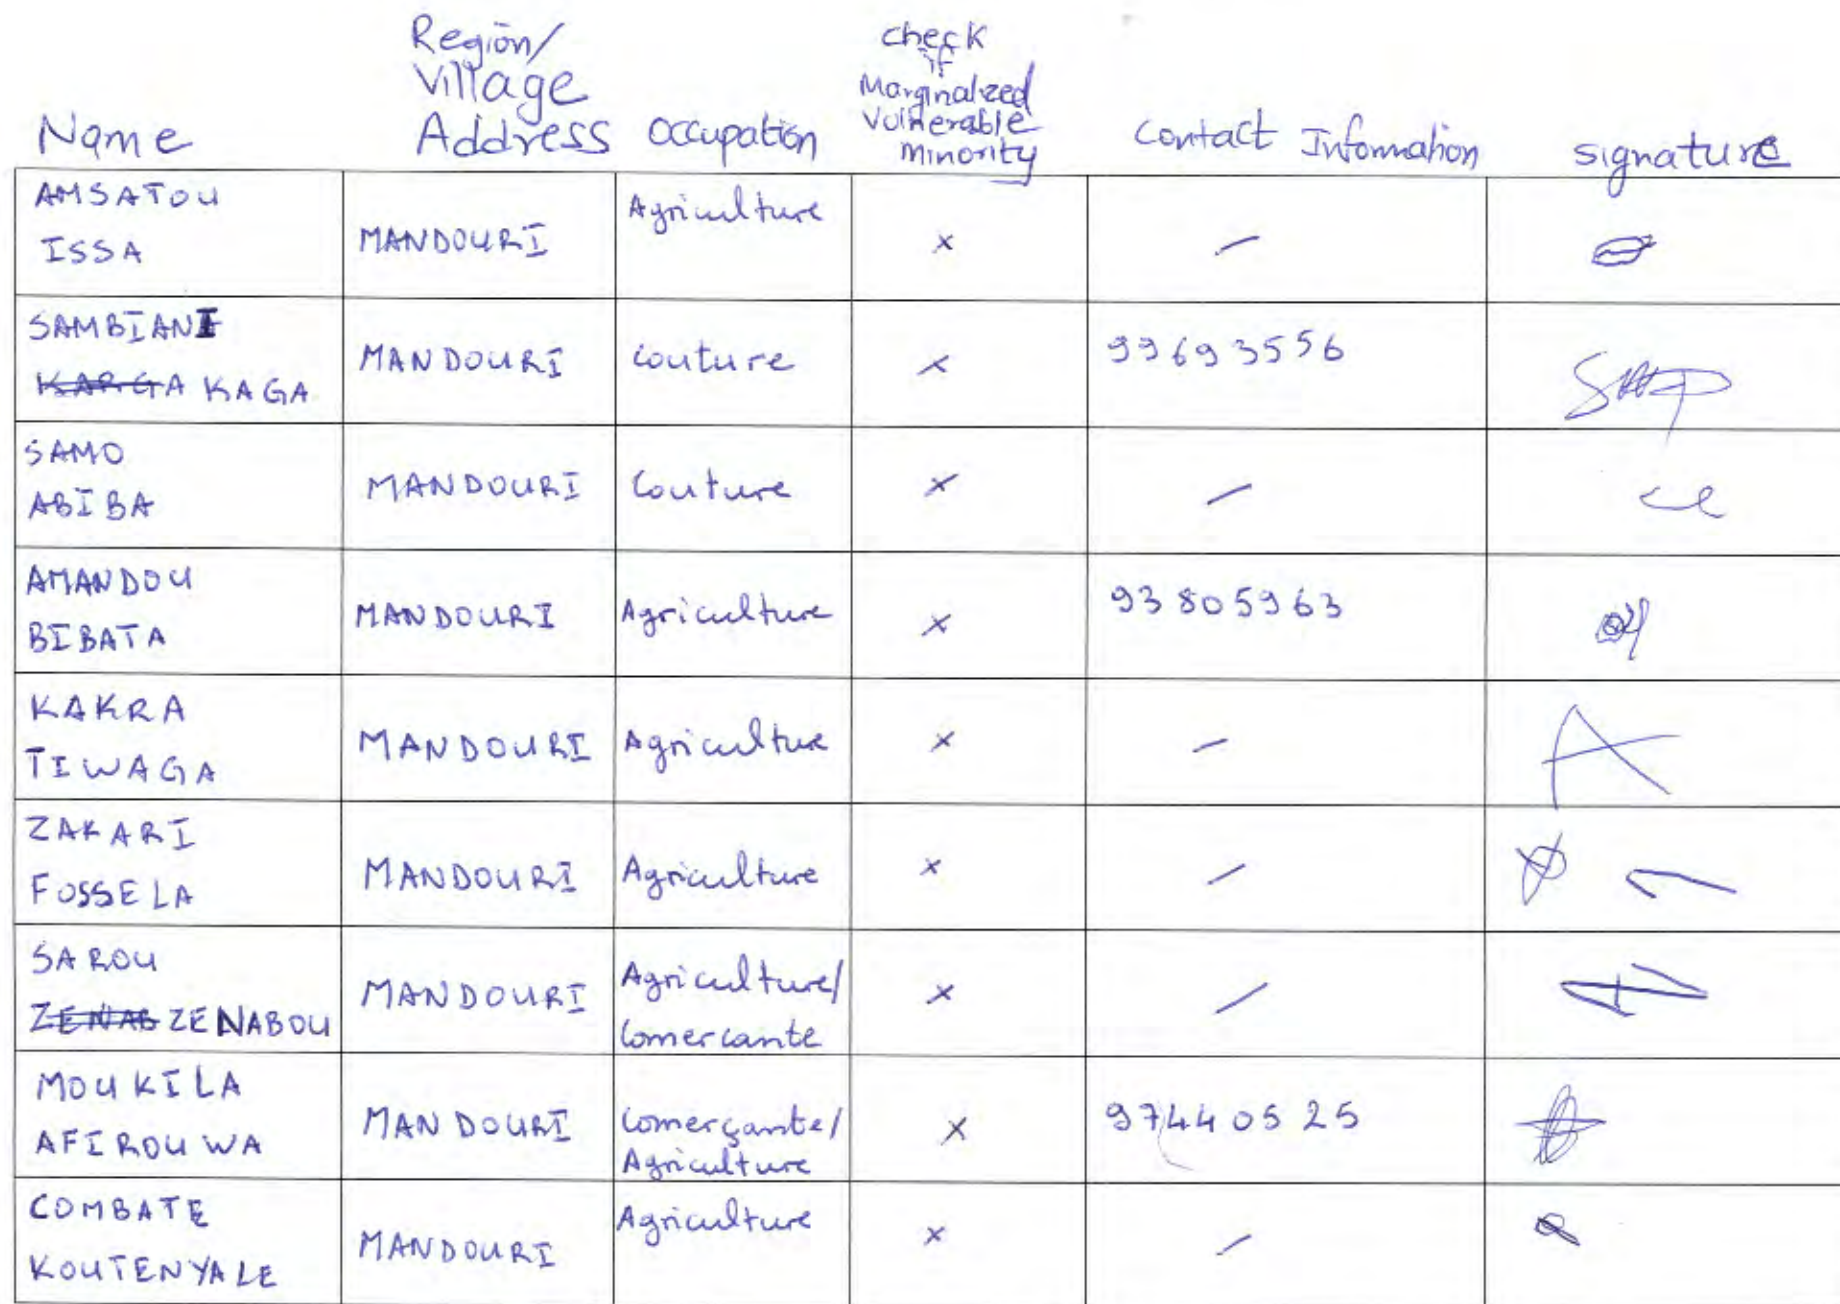 Name Région/ Village Address Occupation check if Marginalized Vulnerable minority contact Information signature
AMSATOU ISSA MANDOURI Agriculture x –
SAMBIANI KARGA KAGA MANDOURI Couture x 99693556
SAMO ABIBA MANDOURI Couture x –
AMANDOU BIBATA MANDOURI Agriculture x 93805963
KAKRA TIWAGA MANDOURI Agriculture x –
ZAKARI FOSSELA MANDOURI Agriculture x –
SAROU ZENAB ZENABOU MANDOURI Agriculture/ Comercante x –
MOUKILA AFIROUWA MANDOURI Comerçante/ Agriculture x 97440525
COMBATE KOUTENYALE MANDOURI Agriculture x –